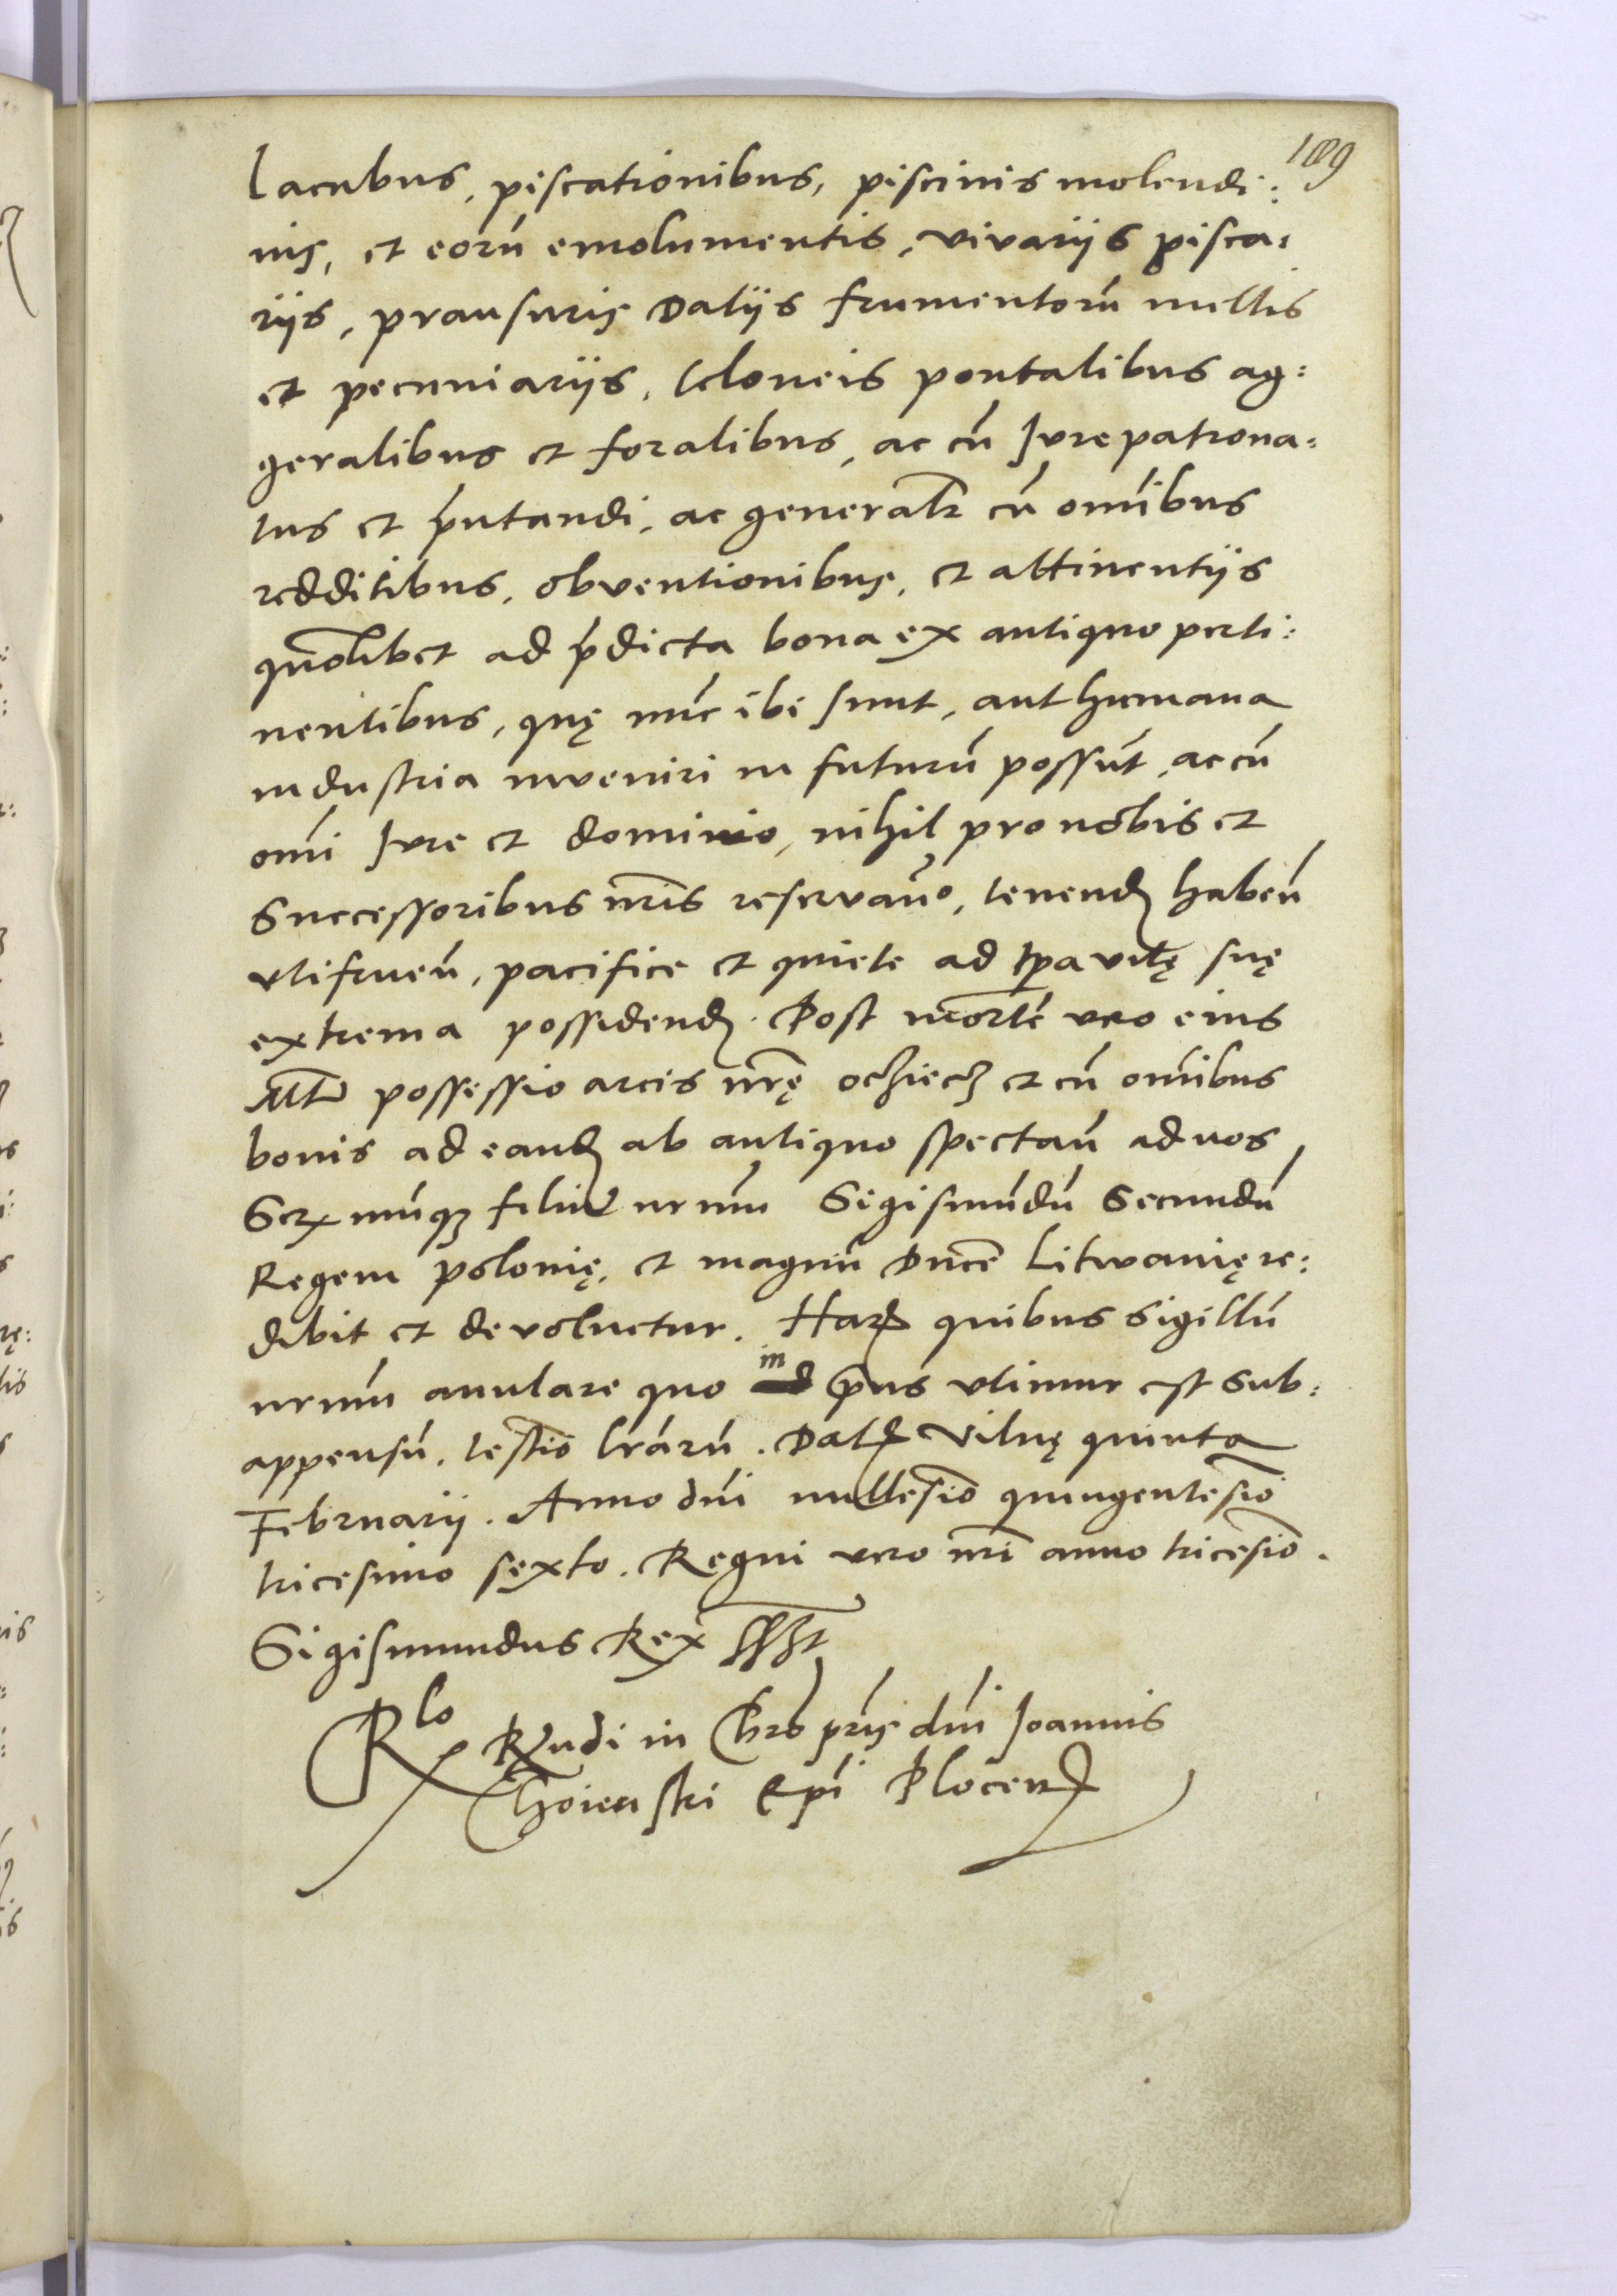 189
lacubus, piscationibus, piscinis molendi:
nis, et eorū emolumentis, vivariis pisca:
riis, prausuris Datiis frumentorū mellis
et pecuniariis, teloneis pontalibus ag:
geralibus et foralibus, ac cū Iure patrona:
tus et p̄ntandi, ac generalr cū om̄ibus
redditibus, obventionibus, et attinentiis
quōlibet ad p̄dicta bona ex antiquo perti:
nentibus, quę nūc ibi sunt, aut humana
industria inveniri in futurū possūt, ac cū
om̄i Iure et dominio, nihil pro nobis et
Successoribus nr̄is reservan̄o, tenend habeñ
utifrueñ, pacifice et quiete ad tp̄a vitę suę
extrema possidend. Post mortē vero eius
possessio arcis nr̄ę et cū om̄ibus
bonis ad eand ab antiquo spectañ ad nos
Ser mūq filiū nrmu Sigismūdū Secundū
Regem Polonię, et magnū Ducē Litwanię re:
dibit et devoluetur. Har quibus Sigillū
nrmū anulare quo in p̄ns utimur est Sub:
appensū, testīo lr̄arū. Dat Vilnę quinta
Februarii. Anno dn̄i millesīo quingentesīo
tricesimo sexto. Regni vero nr̄i anno tricesīo.
Sigismundus Rex sszt
Rlo Rndi in Chr̄o pr̄is dn̄i Joannis
Choienski Ep̄i Plocen